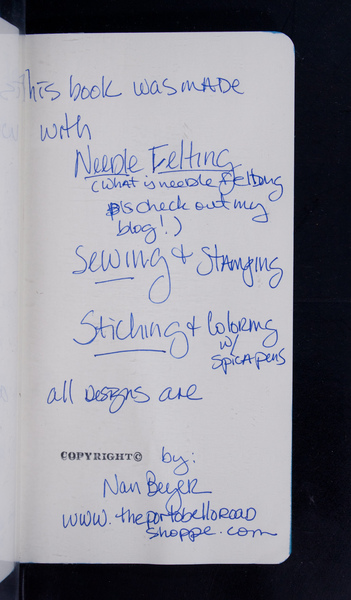 This book was made
with
Needle Felting
(what is needle felting
pls check out my
blog!)
Sewing & Stamping
Stiching & Coloring
w/
Spica pens
all Designs are
COPYRIGHT© by:
Nan Beyer
www.theportobelloroad
shoppe.com